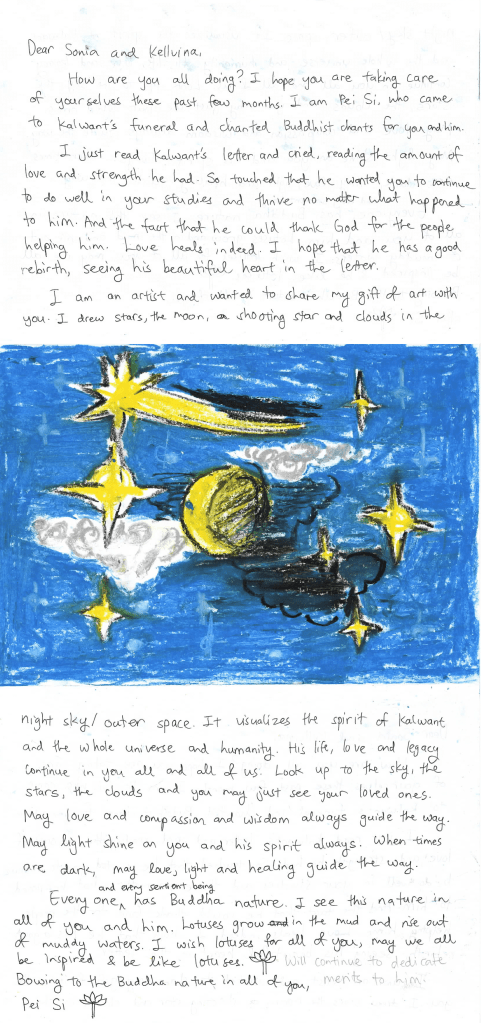 Dear Sonia and Kellvina,
How are you all doing? I hope you are taking care
of yourselves these past few months. I am Pei Si, who came
to Kalwant's funeral and chanted Buddhist chants for you and him.
I just read Kalwant's letter and cried, reading the amount of
love and strength he had. So touched that he wanted you to continue
to do well in your studies and thrive no matter what happened
to him. And the fact that he could thank God for the people
helping him. Love heals indeed. I hope that he has a good
rebirth, seeing his beautiful heart in the letter.
I am an artist and wanted to share my gift of art with
you. I drew stars, the moon, a shooting star and clouds in the
night sky/ outer space. It visualizes the spirit of Kalwant
and the whole universe and humanity. His life, love and legacy
continue in you all and all of us. Look up to the sky, the
stars, the clouds and you may just see your loved ones.
May love and compassion and wisdom always guide the way.
May light shine on you and his spirit always. When times
are dark, may love, light and healing guide the way.
Everyone and every sentient being has Buddha nature. I see this nature in
all of you and him. Lotuses grow in the mud and rise out
of muddy waters. I wish lotuses for all of you, may we all
be inspired & be like lotuses. Will continue to dedicate
Bowing to the Buddha nature in all of you, merits to him.
Pei Si